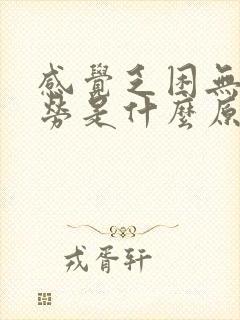 感覺乏困無
勞是什麼原
戎胥轩